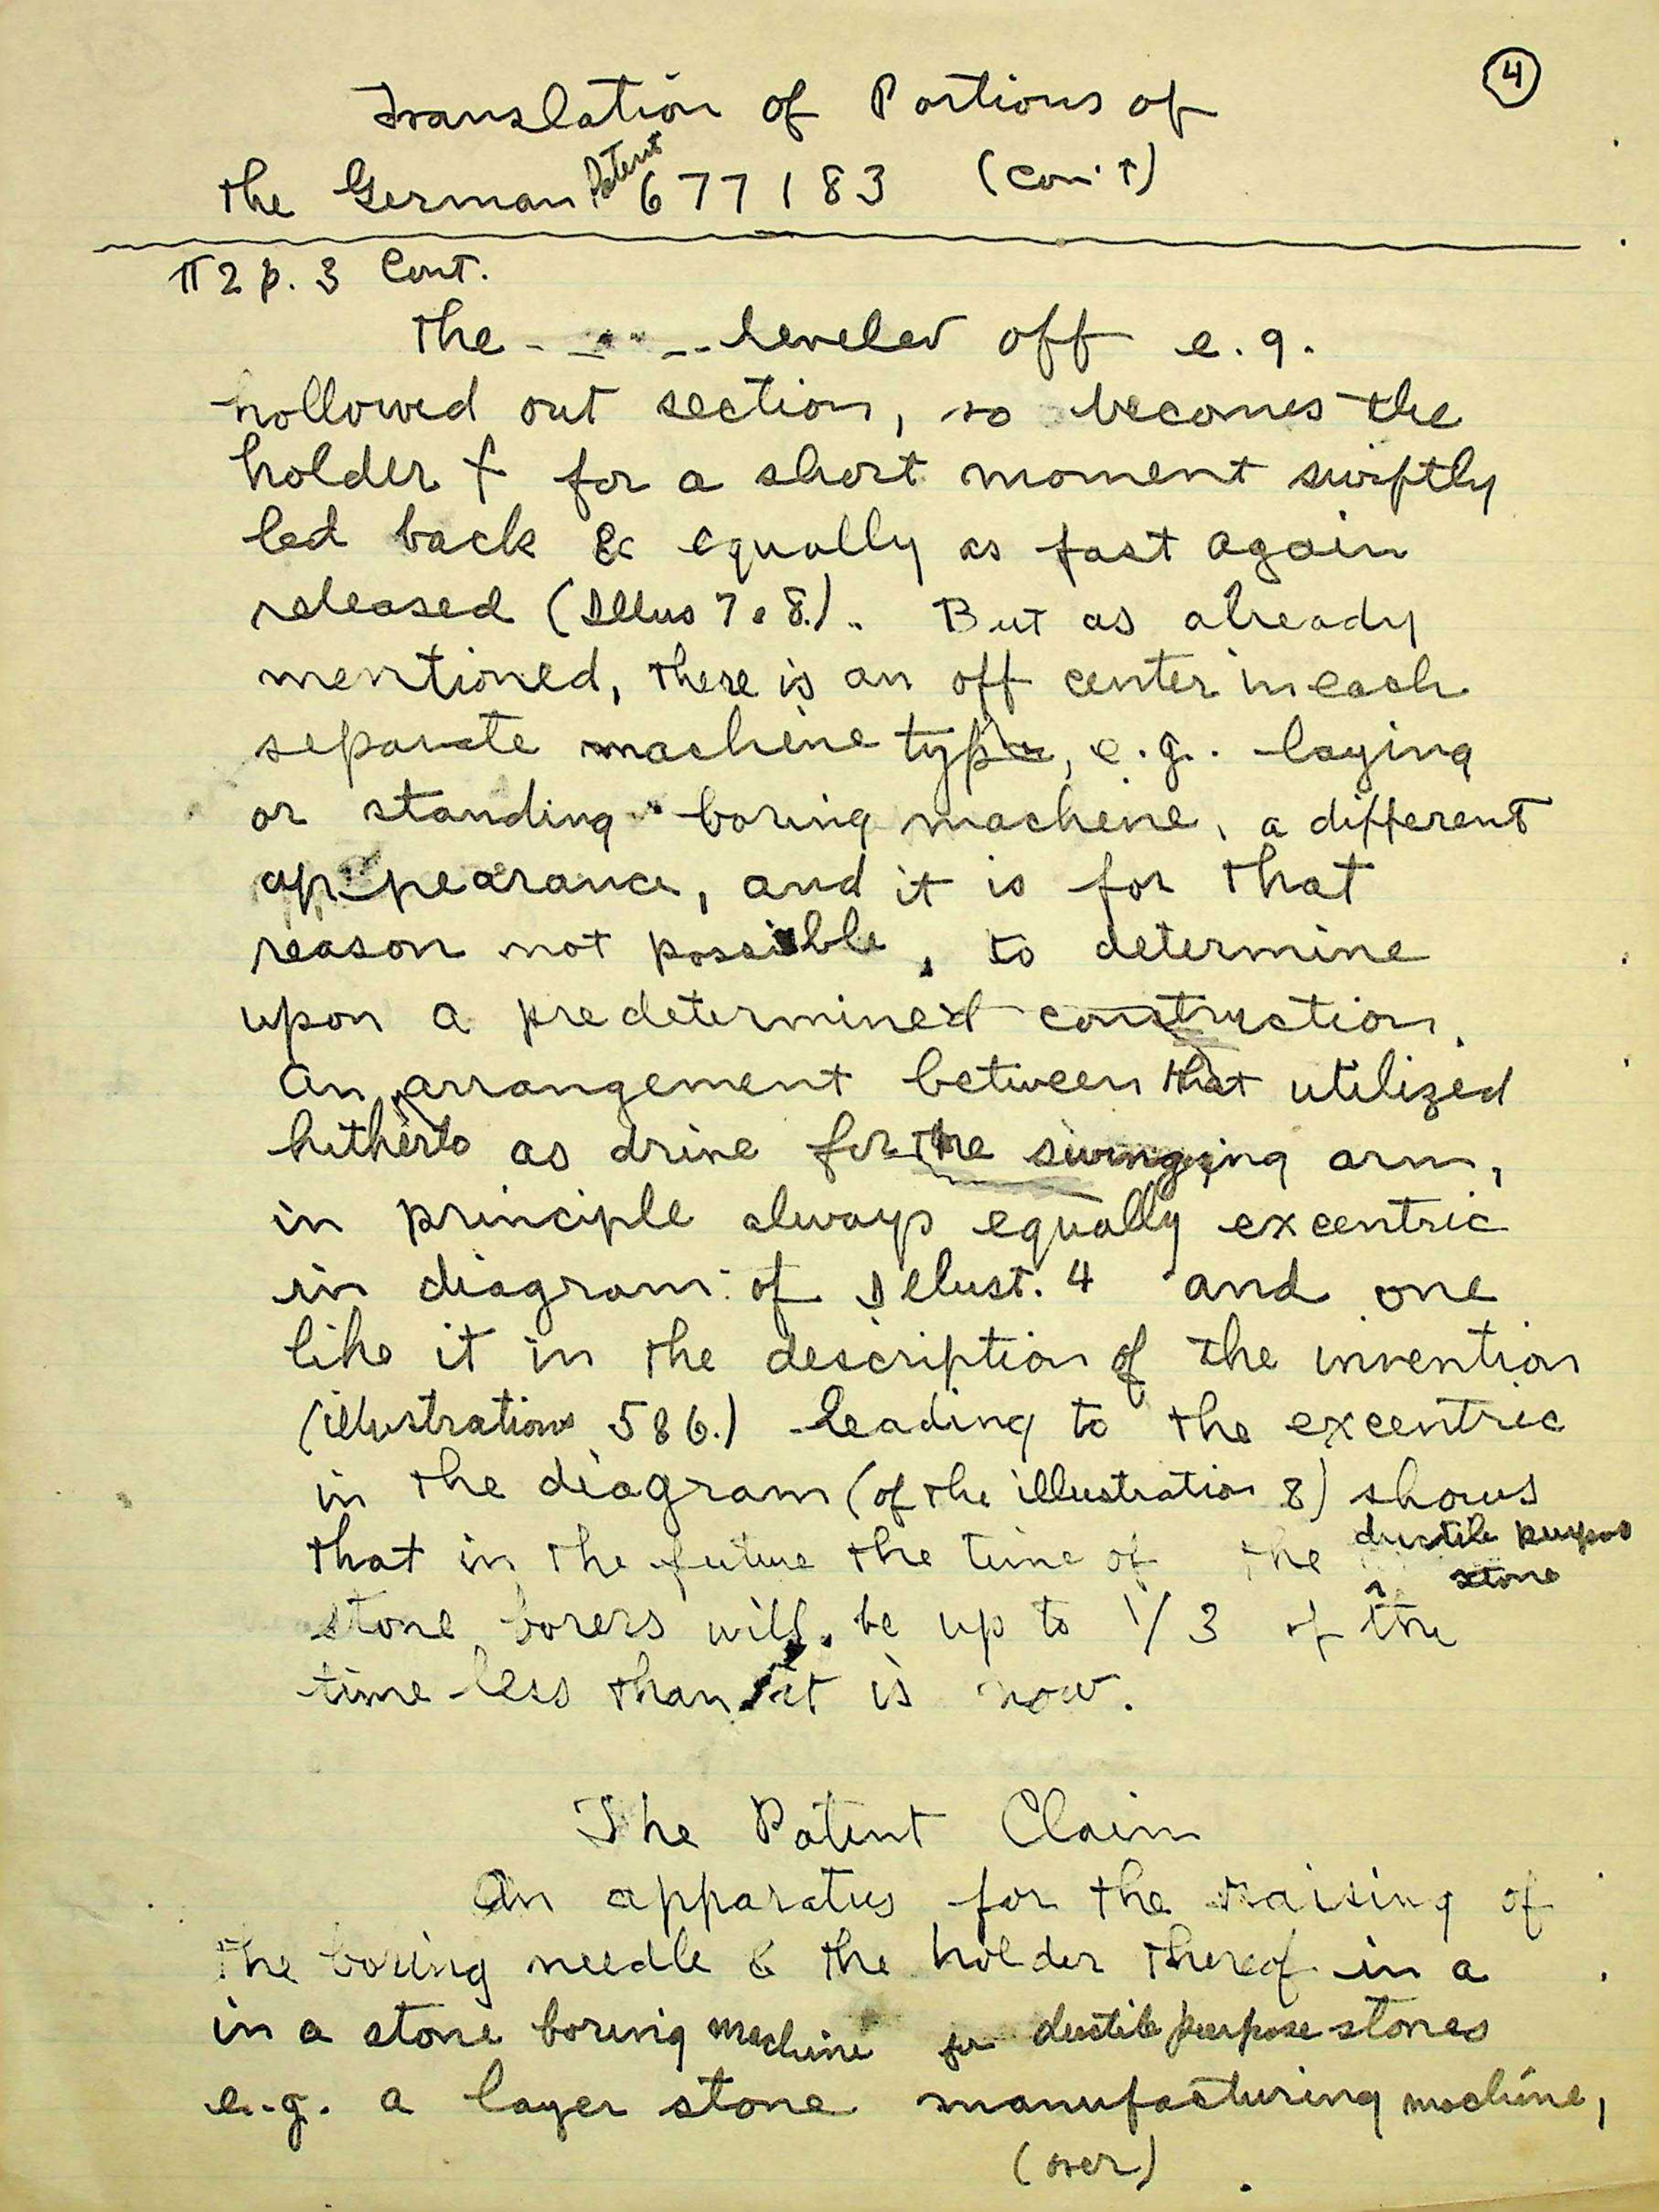 4
Translation of Portions of
the German Patent 677183 (con't)
¶ 2 p. 3 Cont.
The - - - - - leveled off e.g.
hollowed out section, so becomes the
holder f for a short moment swiftly
led back & equally as fast again
released (Illus 7 & 8.). But as already
mentioned, there is an off center in each
separate machine type, e.g. laying
or standing boring machine, a different
appearance, and it is for that
reason not possible, to determine
upon a predetermined construction.
An arrangement between that utilized
hitherto as drive for the swinging arm,
in principle always equally excentric
in diagram of Illust. 4 and one
like it in the description of the invention
(illustrations 5 & 6.) leading to the excentric
in the diagram (of the illustration 8) shows
that in the future the time of the ductile purpos stone
stone borers will be up to 1/3 of the
time less than it is now.
The Patent Claim
An apparatus for the raising of
the boring needle & the holder thereof in a
in a stone boring machine for ductile purpose stones
e.g. a layer stone manufacturing machine,
(over)